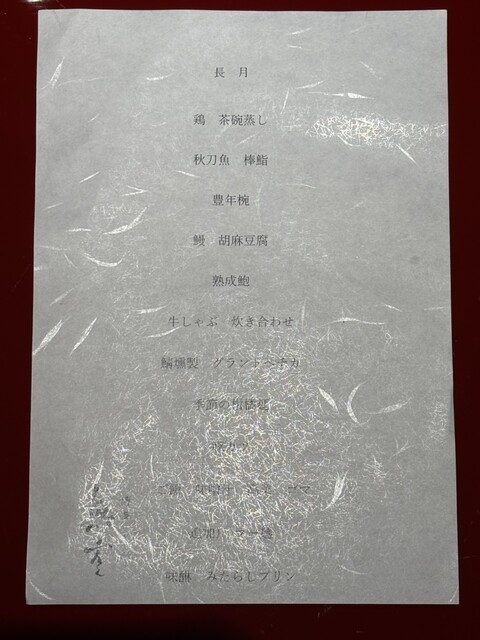 長　月
鶏　茶碗蒸し
秋刀魚　棒鮨
豊年椀
鰻　胡麻豆腐
熟成鮑
牛しゃぶ　炊き合わせ
燻製　グランドペチカ
季節の柑橘
ご飯　味噌汁
味醂　みたらしプリン